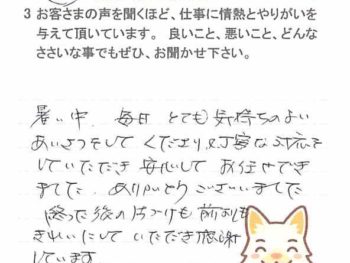 3 お客さまの声を聞くほど、仕事に情熱とやりがいを
与えて頂いています。 良いこと、悪いこと、どんな
ささいな事でもぜひ、お聞かせ下さい。
暑い中、毎日 とても気持ちのよい
あいさつをして くださり、丁寧な対応を
していただき 安心して お任せでき
ました。ありがとうございました
終った後の 片づけも 前よりも
きれいにして いただき感謝
しています